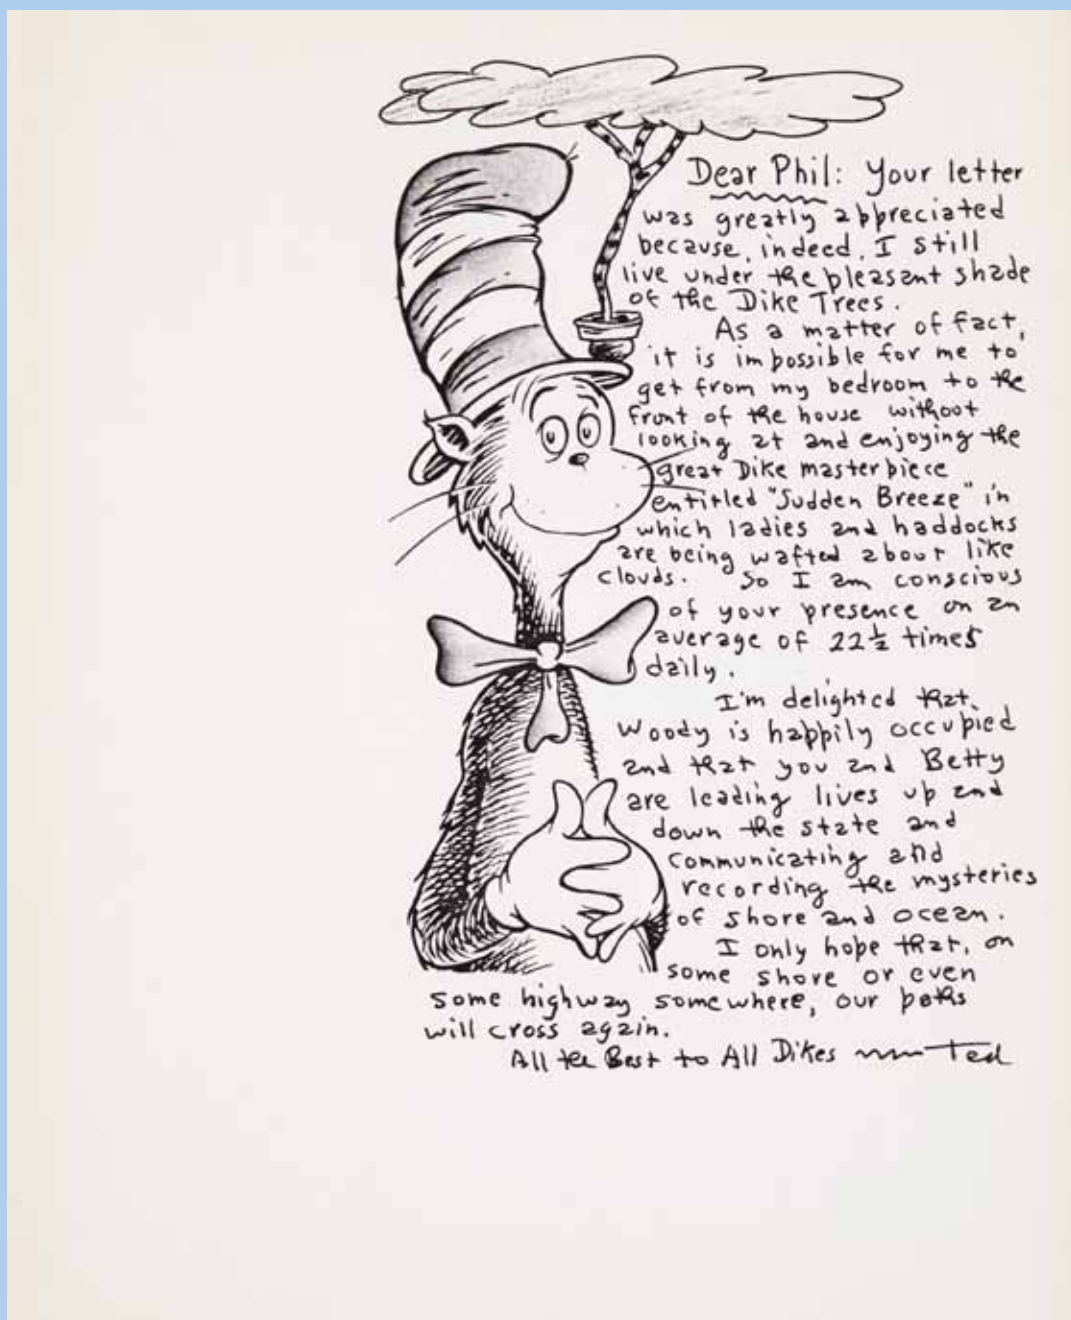 Dear Phil: Your letter
was greatly appreciated
because, indeed, I still
live under the pleasant shade
of the Dike Trees.
As a matter of fact,
it is impossible for me to
get from my bedroom to the
front of the house without
looking at and enjoying the
great Dike masterpiece
entitled "Sudden Breeze" in
which ladies and haddocks
are being wafted about like
clouds. So I am conscious
of your presence on an
average of 22½ times
daily.
I'm delighted that,
Woody is happily occupied
and that you and Betty
are leading lives up and
down the state and
communicating and
recording the mysteries
of shore and ocean.
I only hope that, on
some shore or even
some highway somewhere, our paths
will cross again.
All the Best to All Dikes Ted